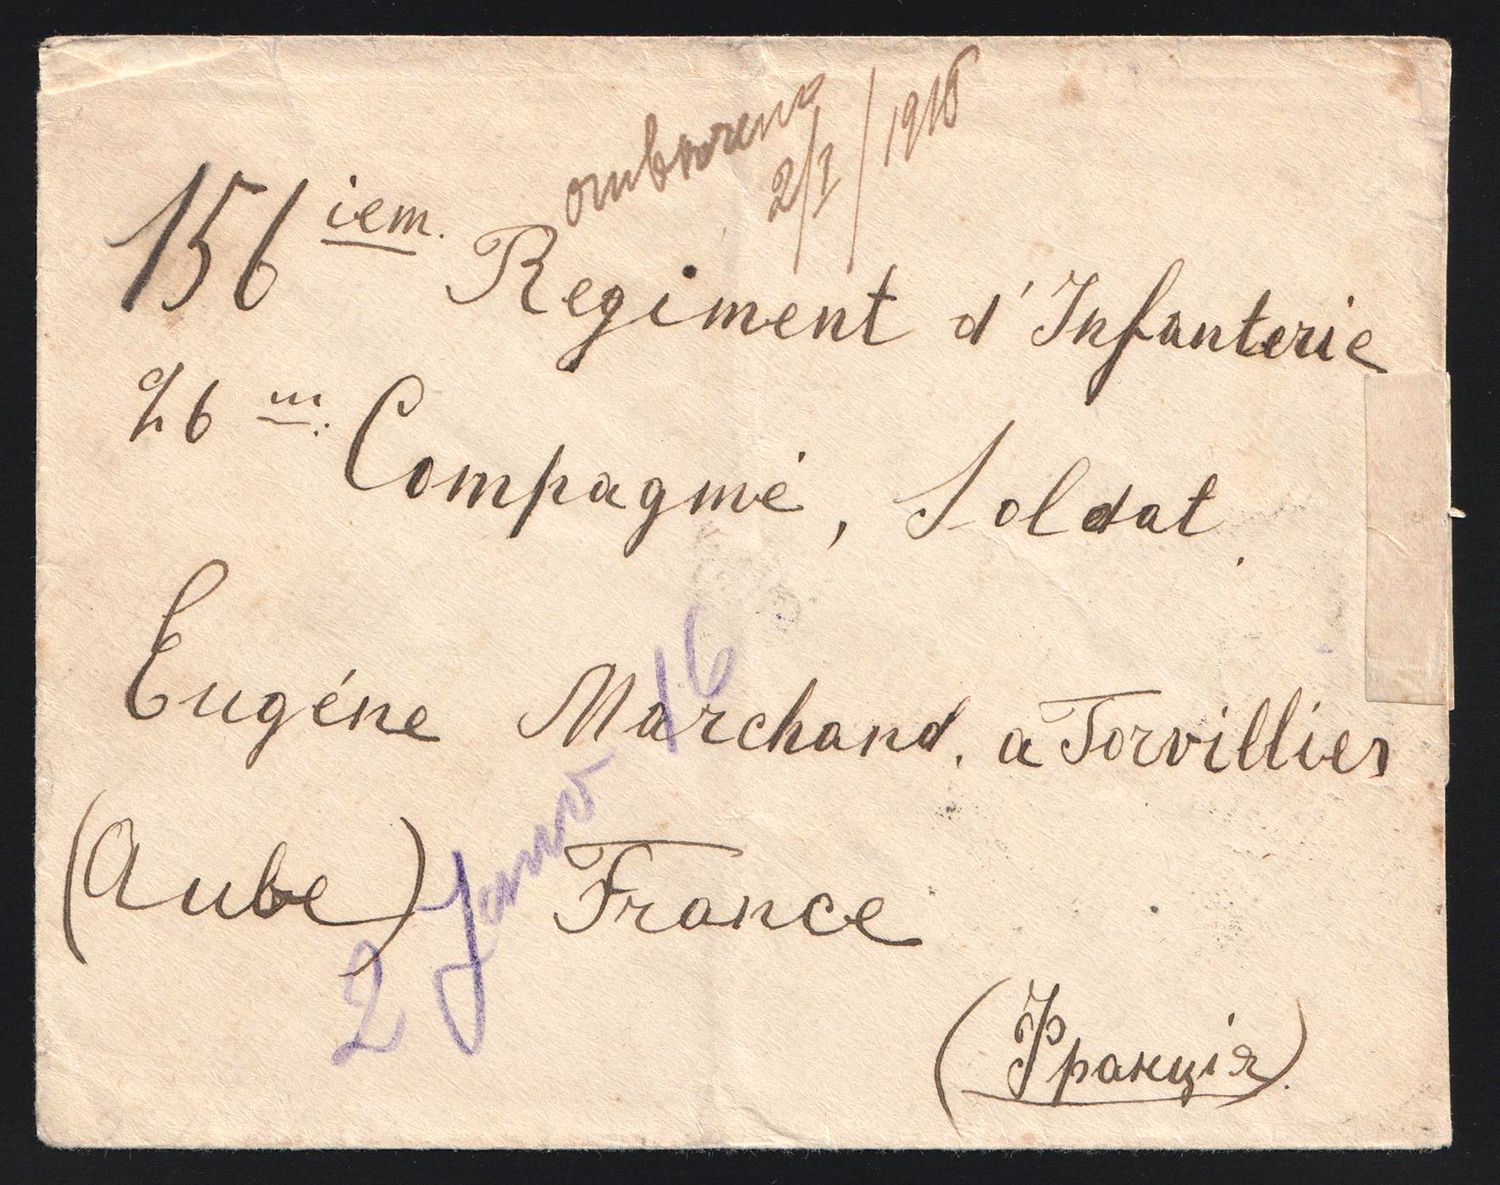 отвѣчено
2/I/1916
156 iem. Regiment d'Infanterie
26 m. Compagnie, Soldat.
Eugéne Marchand. a Torvillier
(Aube) France
2 Janv 16
(Франція).